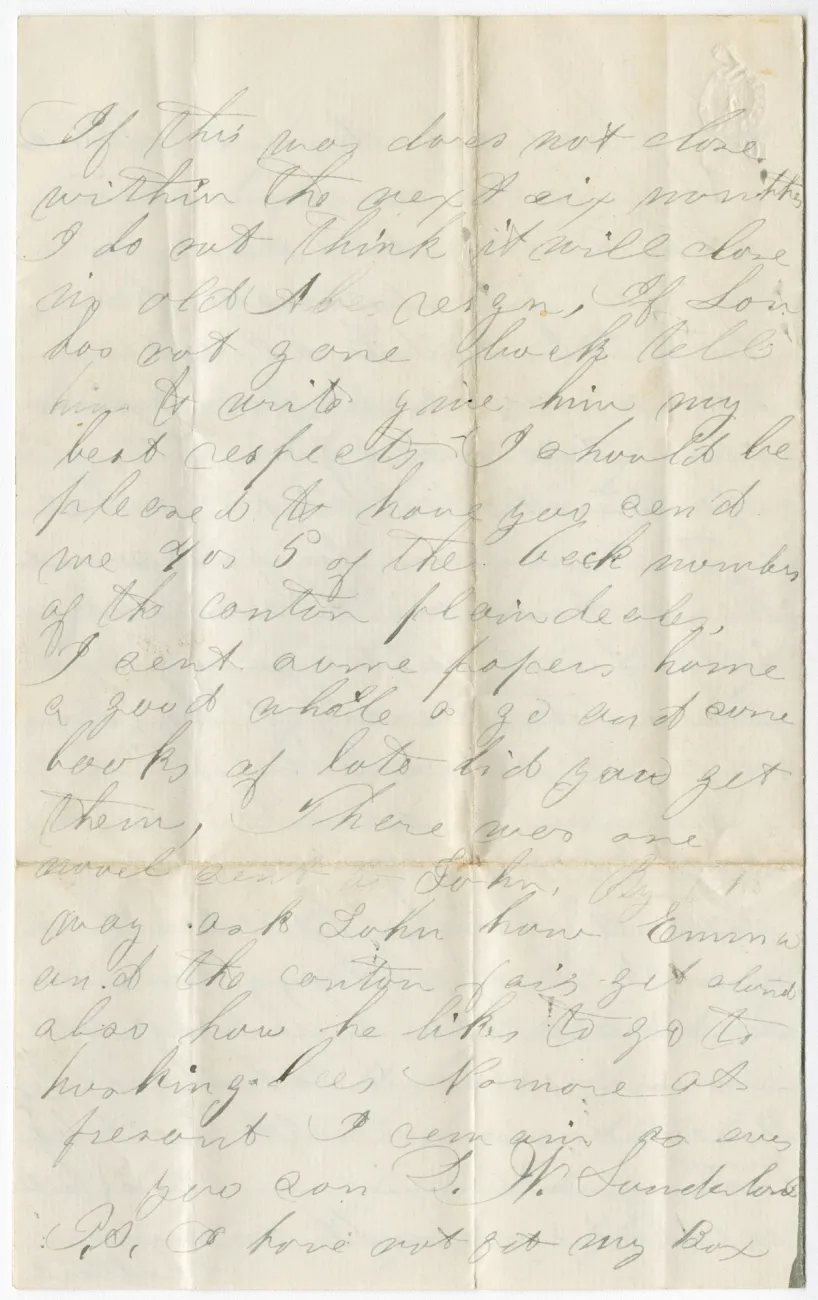 If this war does not close
within the next six months
I do not think it will close
in old Abes reign, If Lon
has not gone back tell
him to write give him my
best respects I should be
pleased to have you send
me 4 or 5 of the back numbers
of the canton plaindealer,
I sent some papers home
a good while a go and some
books of late did you get
them, There was one
novel sent to John, By the
way ask John how Emma
and the canton fair get along
also how he likes to go to
husking bees No more at
present I remain as ever
your son D. W. Sunderland
P.S. I have not got my Box